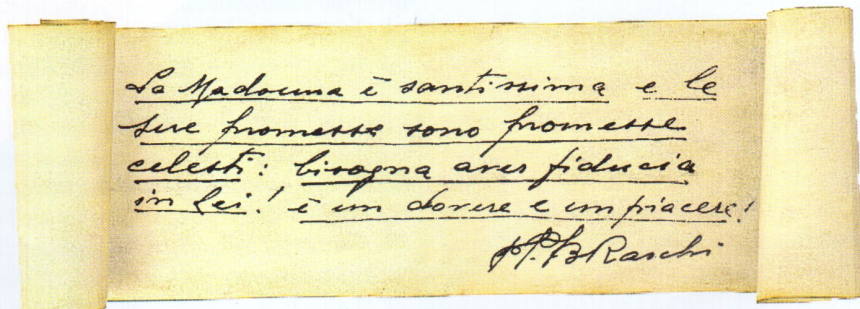 La Madonna è santissima e le
sue promesse sono promesse
celesti: bisogna aver fiducia
in Lei! è un dovere e un piacere!
P. B Raschi